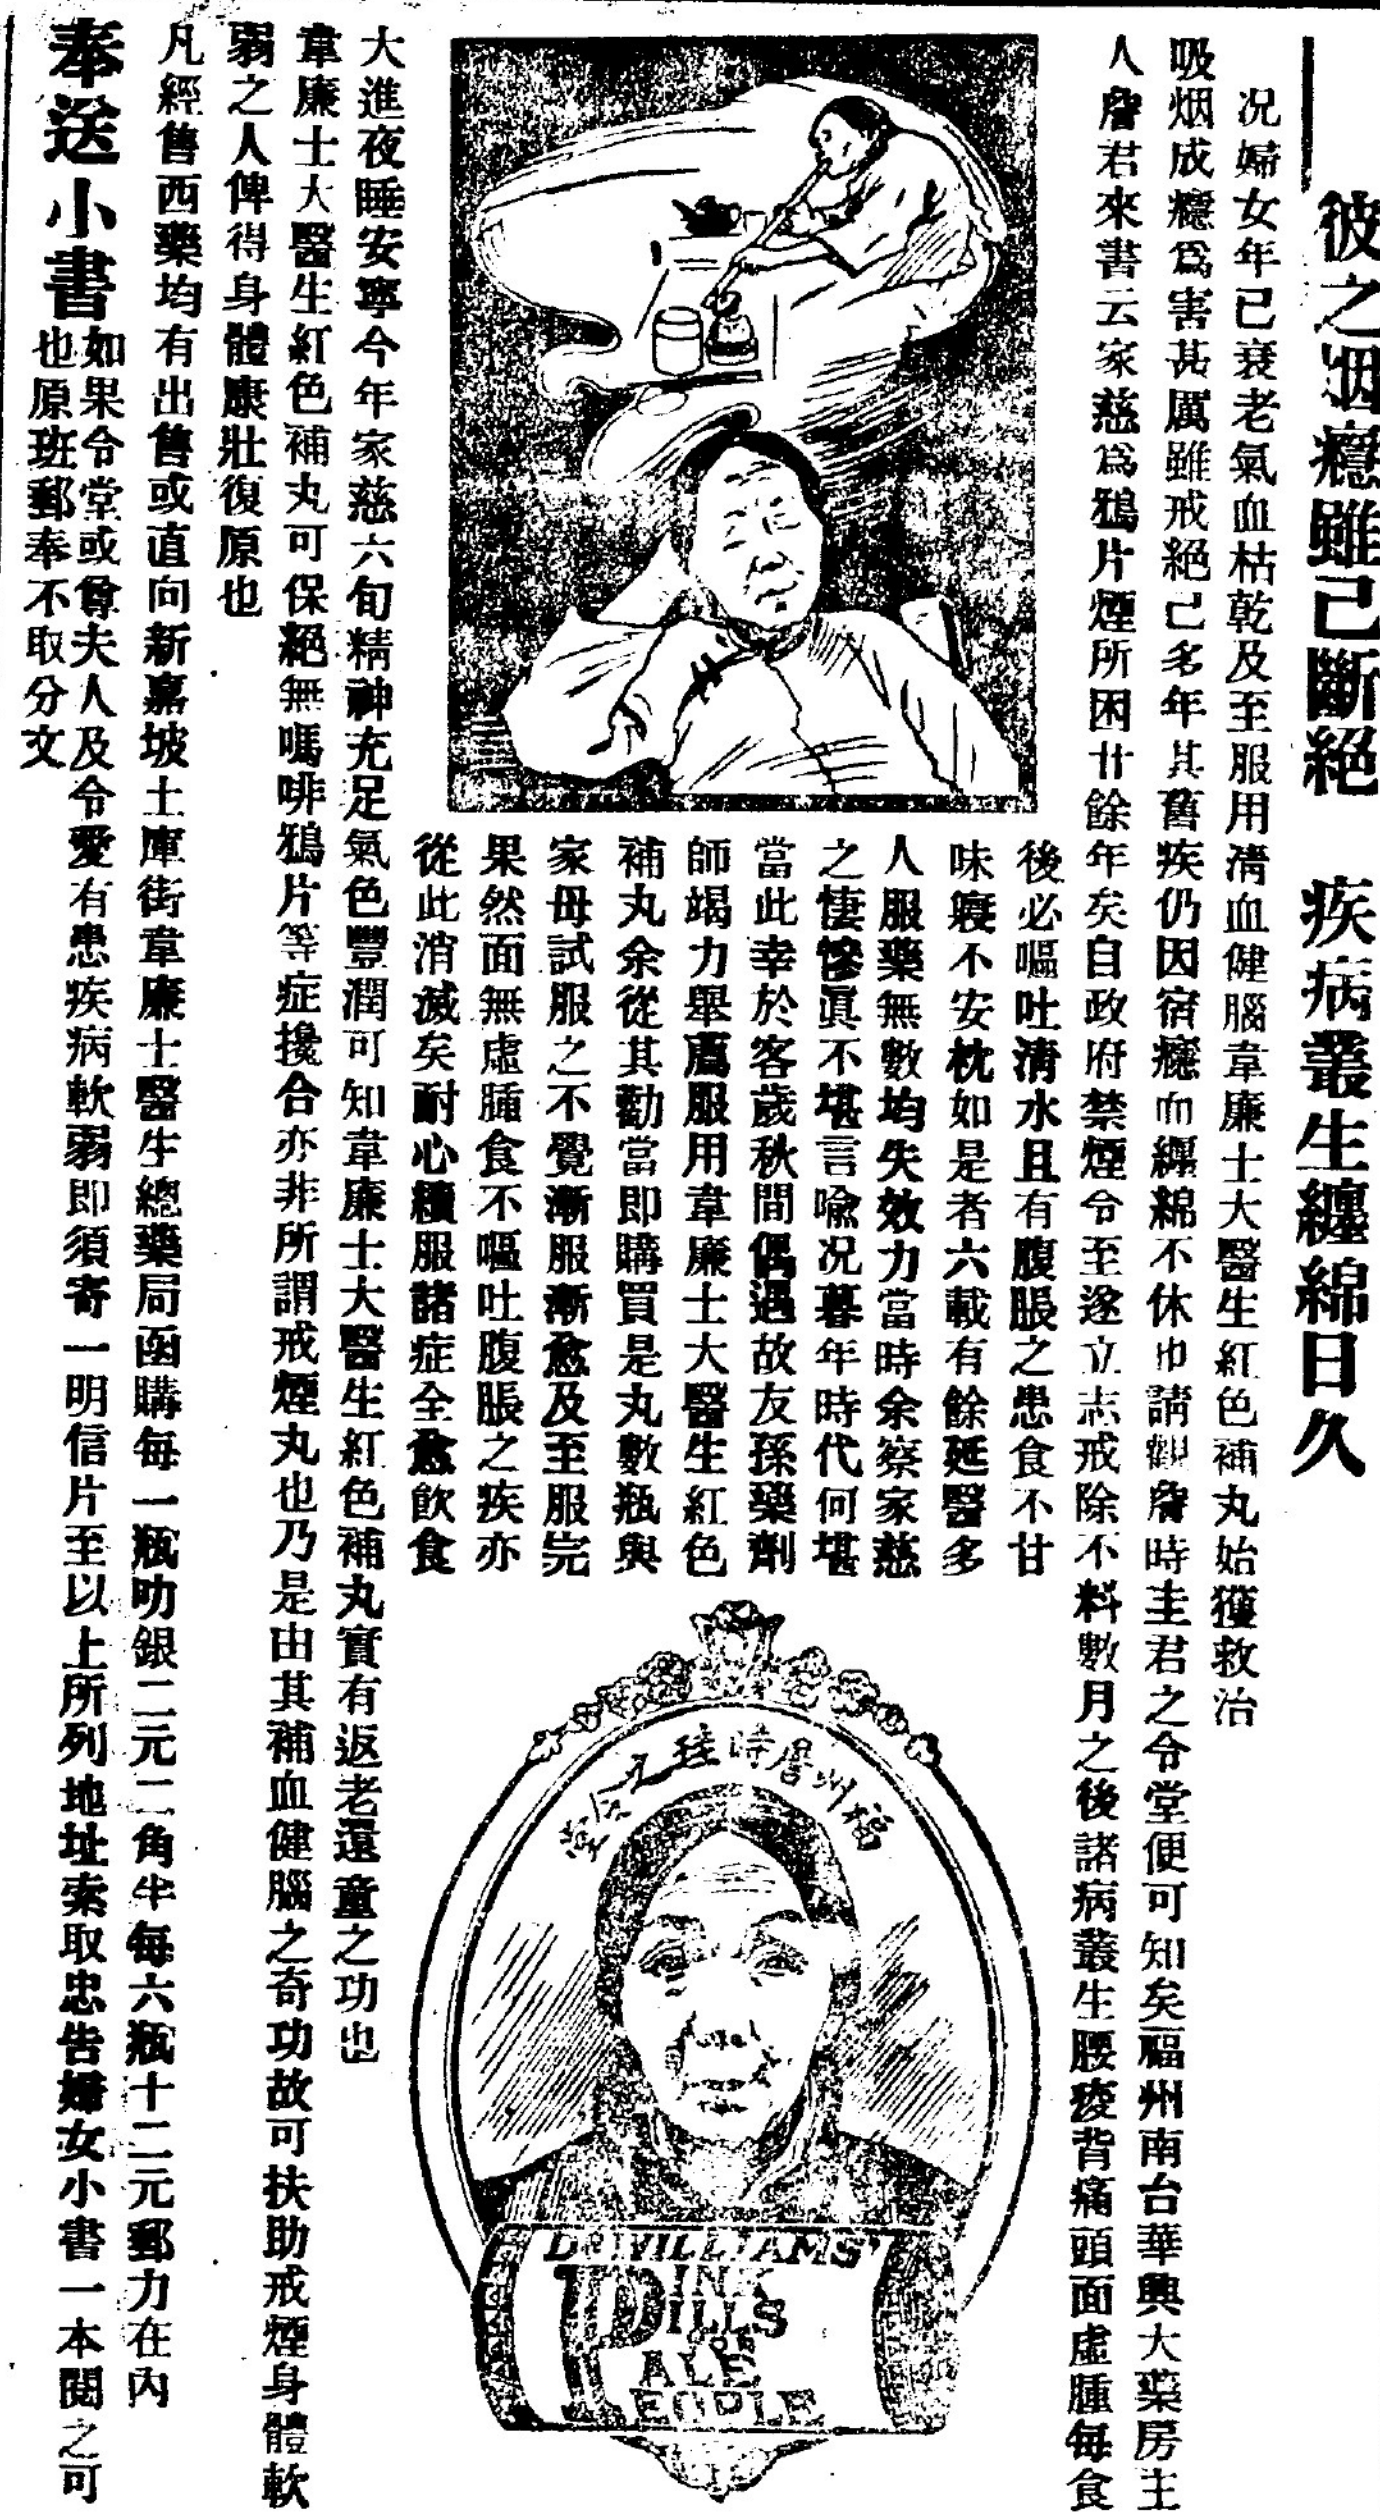 彼之烟癮雖已斷絕 疾病叢生纏綿日久
况婦女年已衰老氣血枯乾及至服用清血健腦韋廉士大醫生紅色補丸始獲救治
吸烟成癮爲害甚厲雖戒絕己多年其舊疾仍因宿癮而纏綿不休也請觀詹時圭君之令堂便可知矣福州南台華興大藥房主
人詹君來書云家慈爲鴉片煙所困廿餘年矣自政府禁煙令至遂立志戒除不料數月之後諸病叢生腰痠背痛頭面虛腫每食
後必嘔吐清水且有腹脹之患食不甘
味寢不安枕如是者六載有餘延醫多
人服藥無數均失效力當時余察家慈
之悽慘眞不堪言喻况暮年時代何堪
當此幸於客歲秋間偶遇故友孫藥劑
師竭力舉薦服用韋廉士大醫生紅色
補丸余從其勸當即購買是丸數瓶與
家母試服之不覺漸服漸愈及至服完
果然面無虛腫食不嘔吐腹脹之疾亦
從此消滅矣耐心續服諸症全愈飲食
大進夜睡安寧今年家慈六旬精神充足氣色豐潤可知韋廉士大醫生紅色補丸實有返老還童之功也
韋廉士大醫生紅色補丸可保絕無嗎啡鴉片等症攙合亦非所謂戒煙丸也乃是由其補血健腦之奇功故可扶助戒煙身體軟
弱之人俾得身體康壯復原也
凡經售西藥均有出售或直向新嘉坡土庫街韋廉士醫生總藥局函購每一瓶叻銀二元二角半每六瓶十二元郵力在內
奉送小書
如果令堂或尊夫人及令愛有患疾病軟弱即須寄一明信片至以上所列地址索取忠告婦女小書一本閱之可
也原班郵奉不取分文
福州詹時圭之令堂
DR WILLIAMS'
PINK
PILLS
FOR
PALE
PEOPLE